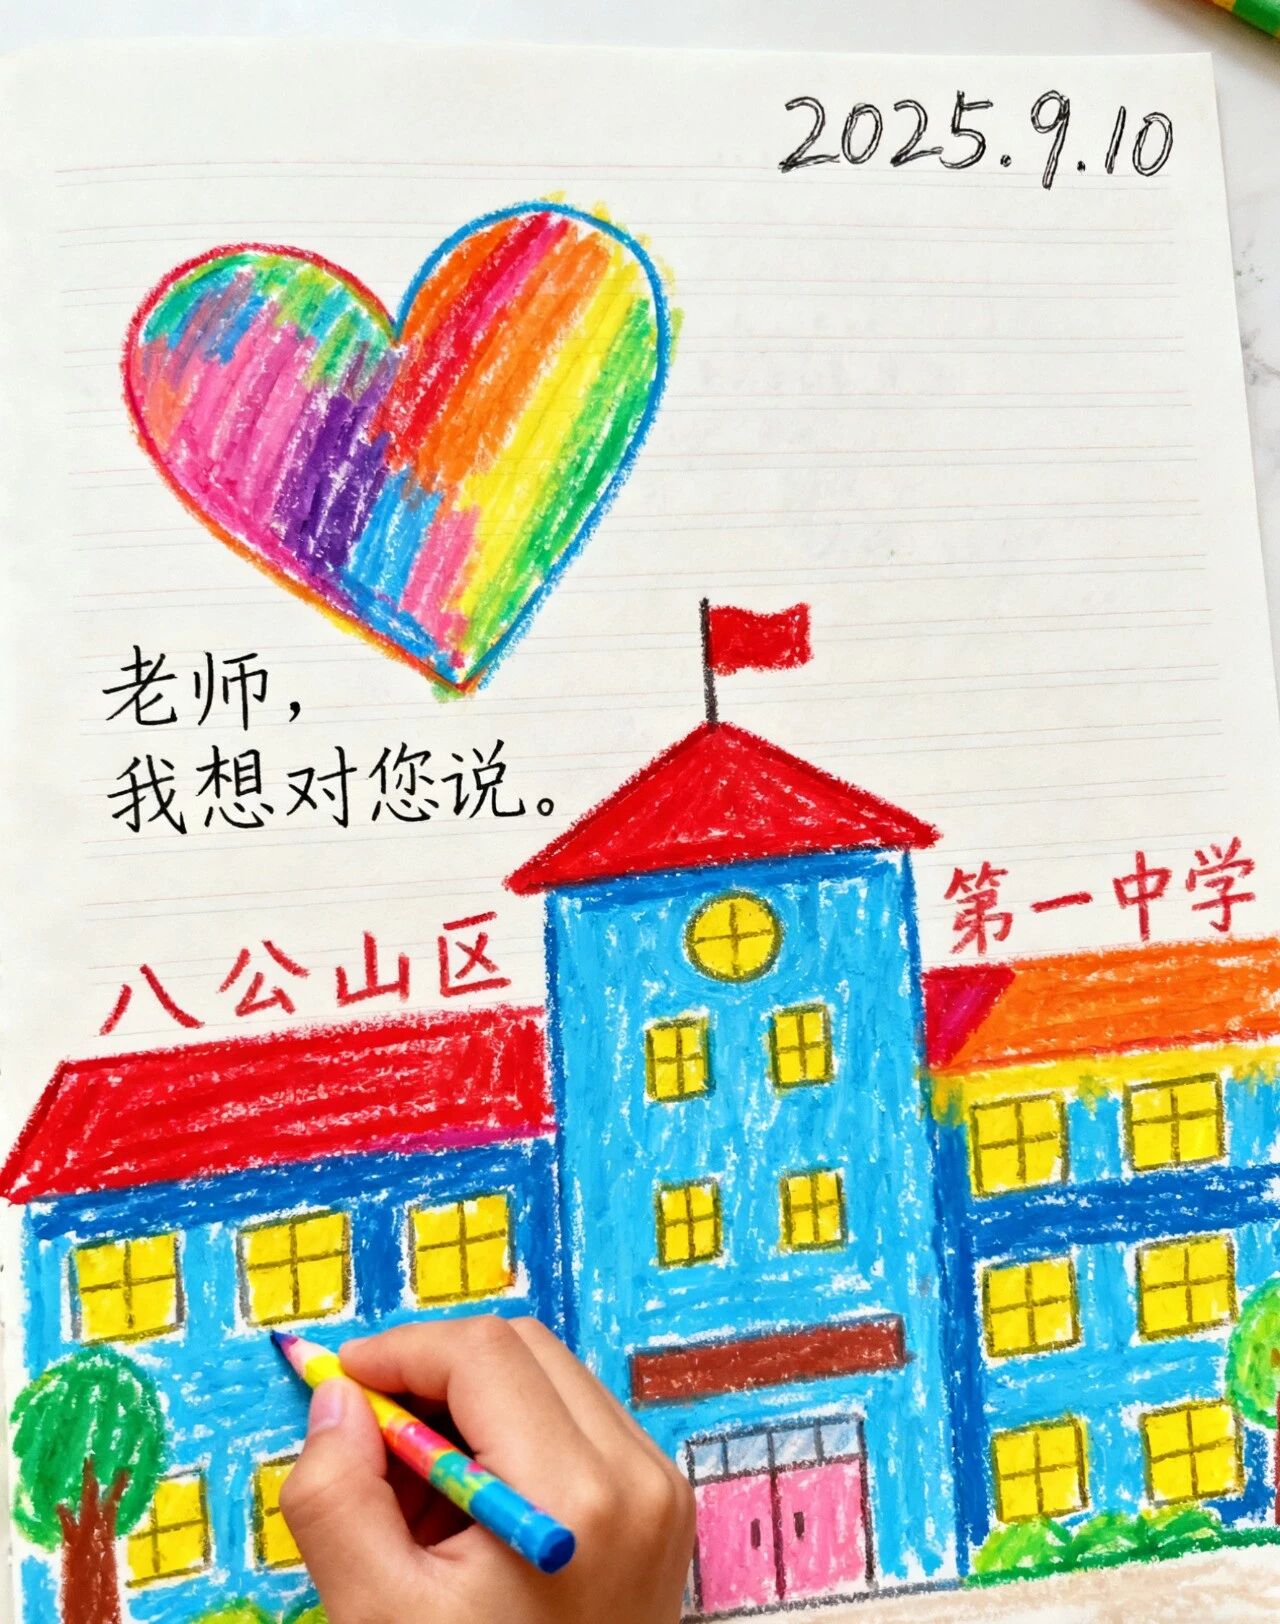 2025.9.10
老师，
我想对您说。
八公山区 第一中学